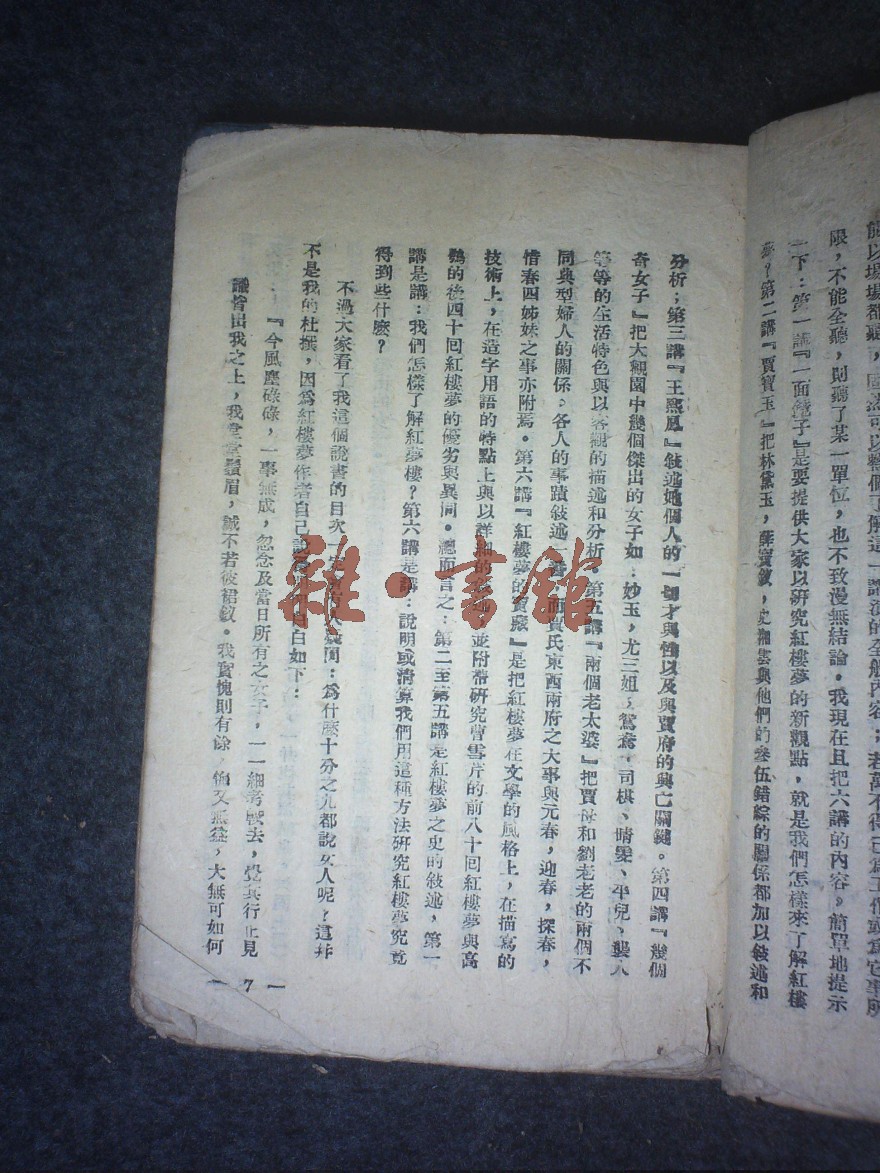 能以場場都聽，固然可以整個了解這一講演的全般內容；若萬不得已爲工作或爲它事所
限，不能全聽，則聽了某一單位，也不致漫無結論。我現在且把六講的內容。簡單地提示
一下：第一講『一面鏡子』是要提供大家以研究紅樓夢的新觀點，就是我們怎樣來了解紅樓
夢？第二講『賈寶玉』把林黛玉，薛寶釵，史湘雲與他們的叄伍錯綜的關係都加以敍述和
分析；第三講『王熙鳳』敍述她個人的一切才與性以及與賈府的興亡關鍵。第四講『幾個
奇女子』把大觀園中幾個傑出的女子如：妙玉，尤三姐，鴛鴦，司棋，晴雯，平兒，襲人
等等的生活特色與以客觀的描述和分析 第五講『兩個老太婆』把賈母和劉老老的兩個不
同典型婦人的關係，各人的事蹟敍述一番，而賈氏東西兩府之大事與元春，迎春，探春，
惜春四姊妹之事亦附焉。第六講『紅樓夢的寶藏』是把紅樓夢在文學的風格上，在描寫的
技術上，在造字用語的特點上與以詳細的敍述，並附帶研究曹雪芹的前八十回紅樓夢與高
鶚的後四十回紅樓夢的優劣與異同。總而言之：第二至第五講是紅樓夢之史的敍述，第一
講是講：我們怎樣了解紅夢樓？第六講是講：說明或清算我們用這種方法研究紅樓夢究竟
得到些什麼？
不過大家看了我這個說書的目次一定會有人疑問：爲什麼十分之九都說女人呢？這并
不是我的杜撰，因爲紅樓夢作者自己說 白如下：
『今風塵碌碌，一事無成，忽念及當日所有之女子，一一細考較去，覺其行止見
識皆出我之上，我堂堂鬚眉，誠不若彼裙釵。我實愧則有餘，悔又無益，大無可如何
— 7 —
雜·書館